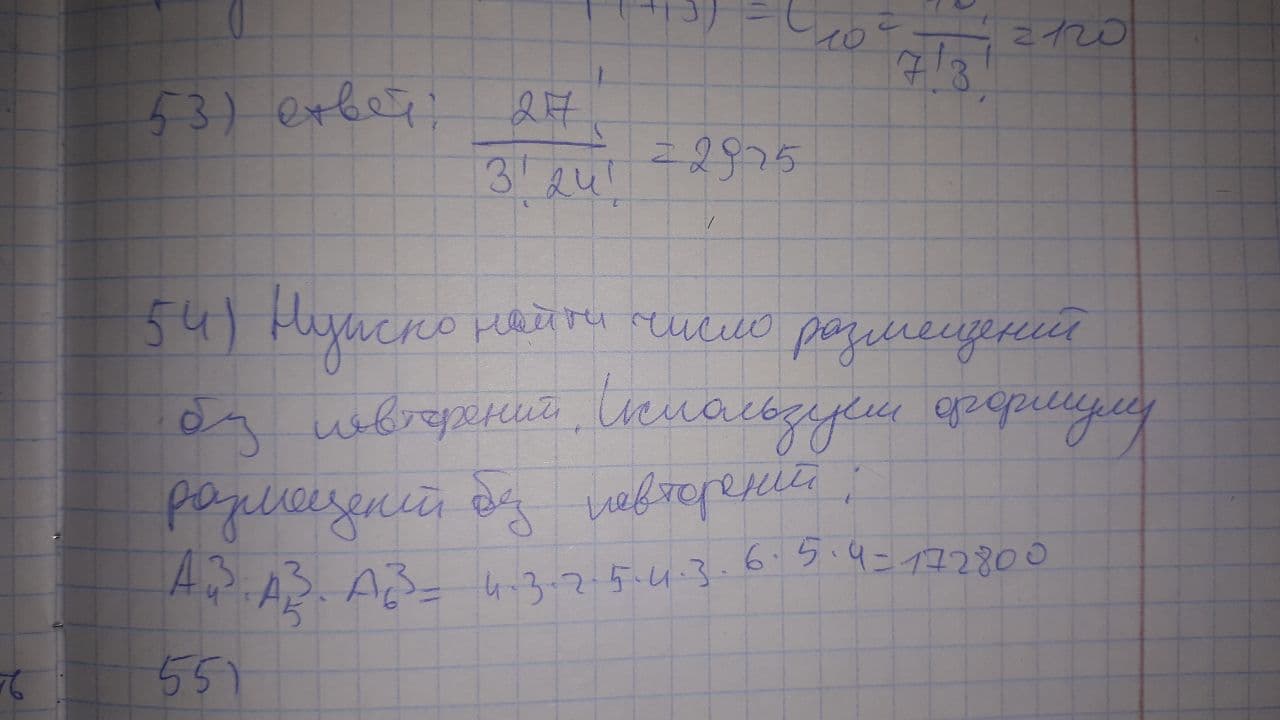 (7,3) = C₁₀ = 10! / 7!3! = 120
53) ответ: 27! / 3! 24! = 2925
54) Нужно найти число размещений
без повторений. Используем формулу
размещений без повторений:
A₄³ · A₅³ · A₆³ = 4·3·2·5·4·3·6·5·4=172800
55)